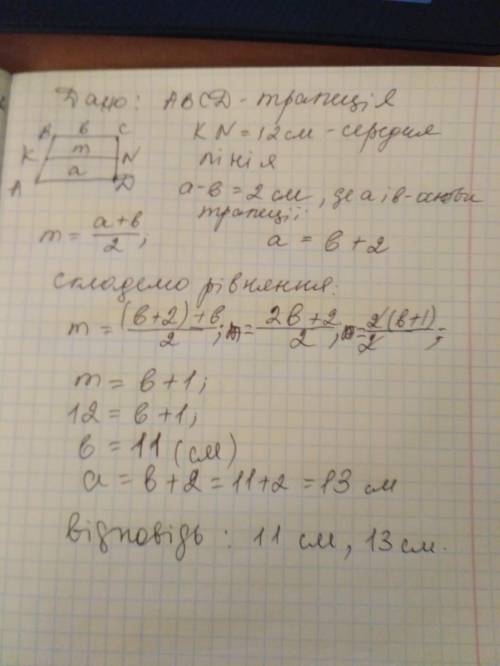 Дано: ABCD - трапеція
B в C
K m N
A a D
KN = 12 см - середня
лінія
a - в = 2 см, де a і в - основи
трапеції;
m = (a + в)/2;
a = в + 2
Складемо рівняння:
m = ((в + 2) + в)/2; m = (2в + 2)/2; m = 2(в + 1)/2;
m = в + 1;
12 = в + 1;
в = 11 (см)
a = в + 2 = 11 + 2 = 13 см
Відповідь: 11 см, 13 см.